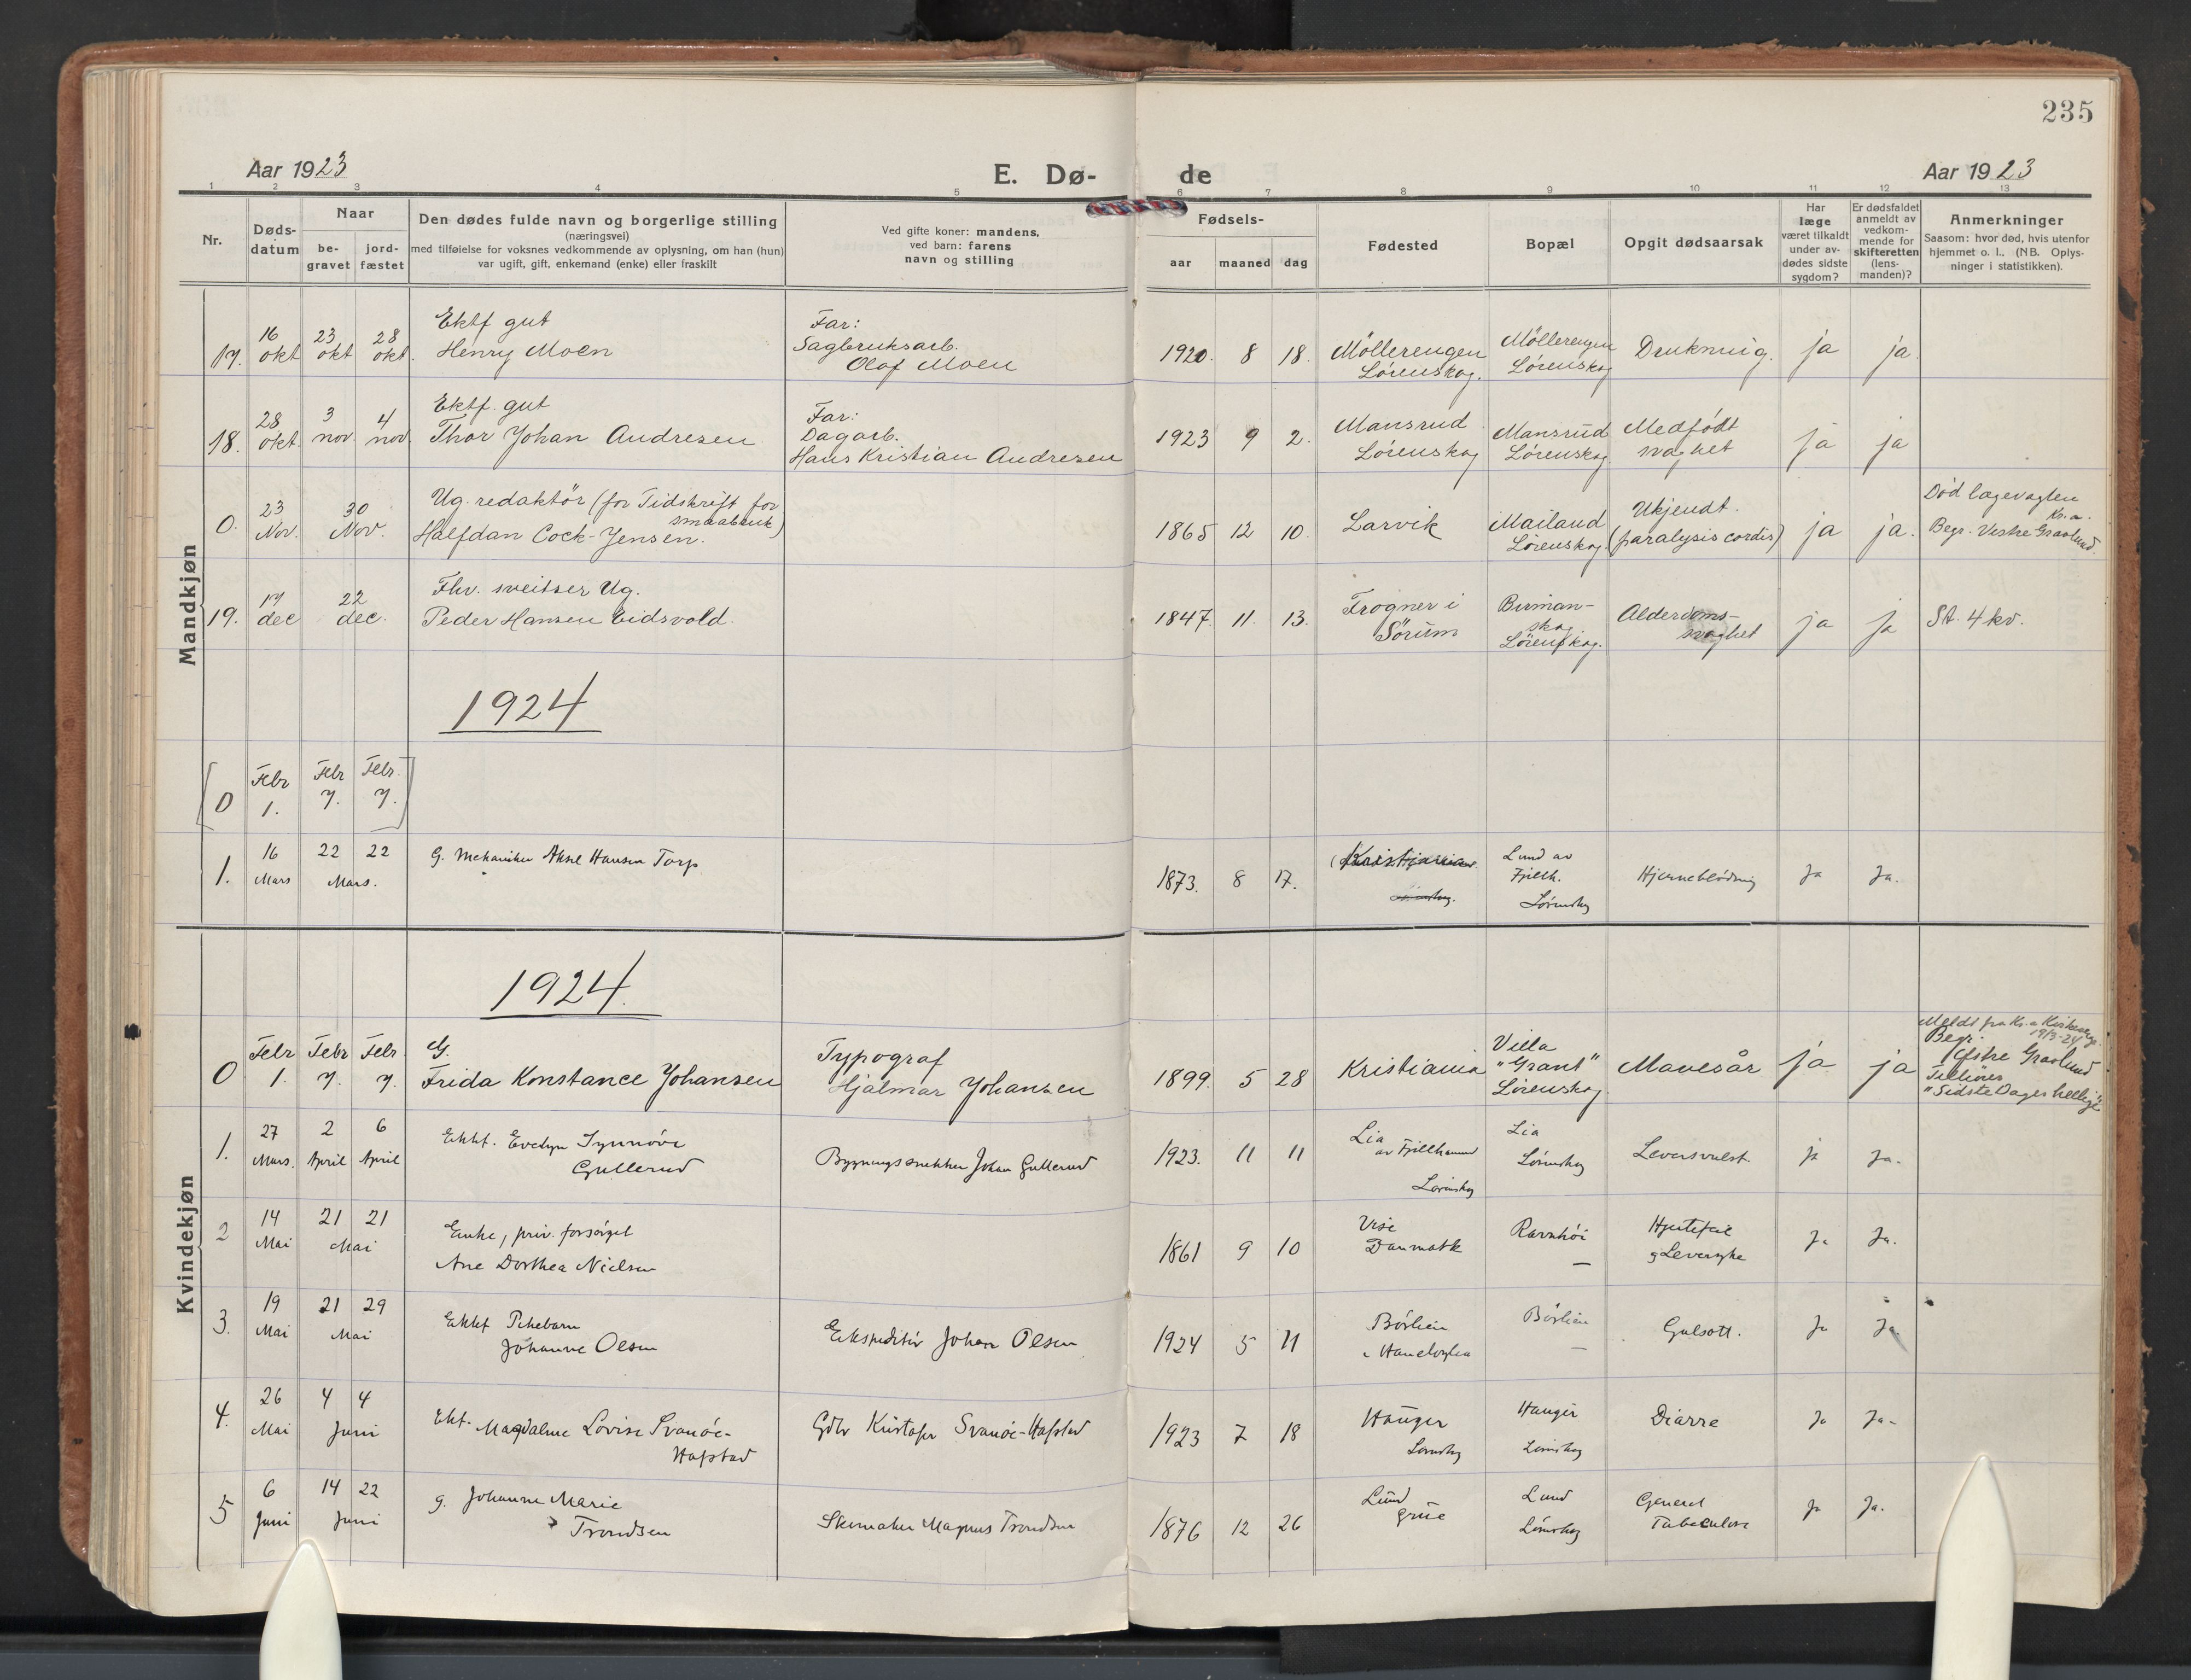 235
Aar 1923
E. Dø-
de
Aar 1923
1 2 3 4 5 6 7 8 9 10 11 12 13
Nr.
Døds-
datum
Naar
be-
gravet
jord-
fæstet
Den dødes fulde navn og borgerlige stilling
(næringsvei)
med tilføielse for voksnes vedkommende av oplysning, om han (hun)
var ugift, gift, enkemand (enke) eller fraskilt
Ved gifte koner: mandens,
ved barn: farens
navn og stilling
Fødsels-
aar maaned dag
Fødested
Bopæl
Opgit dødsaarsak
Har
læge
været tilkaldt
under av-
dødes sidste
sygdom?
Er dødsfaldet
anmeldt av
vedkom-
mende for
skifteretten
(lens-
manden)?
Anmerkninger
Saasom: hvor død, hvis utenfor
hjemmet o. l., (NB. Oplys-
ninger i statistikken).
Mandkjøn
17.
16
okt
23
okt
28
okt.
Ektf gut
Henry Moen
Far:
Sagbruksarb.
Olaf Moen
1920. 8 18.
Möllerengen
Lørenskog.
Möllerengen
Lørenskog
Drukning.
ja
ja.
18.
28
okt.
3
nov.
4
nov.
Ektf. gut
Thor Johan Andresen
Far:
Dagarb.
Hans Kristian Andresen
1923 9 2.
Mansrud
Lørenskog
Mansrud
Lørenskog.
Medfödt
svaghet
ja
ja
0.
23
Nov.
30
Nov.
Ug. redaktör (for Tidskrift for
smaabruk)
Halfdan Cock-Jensen.
1865 12 10.
Larvik
Mailand
Lørenskog.
Ukjendt.
(paralysis cordis)
ja
ja.
Død lægevagten
Kr.a.
Begr. Vestre Gravlund.
19.
17
dec
22
dec.
Fhv. sveitser Ug.
Peder Hansen Eidsvold.
1847. 11. 13.
Frogner i
Sörum
Birman-
skog
Lørenskog.
Alderdoms-
svaghet
ja
ja
St. 4 kv.
1924
[0
Febr
1.
Febr
7.
Febr.
7.]
1.
16
Mars
22 22
Mars.
G. Mekaniker Aksel Hansen Torp
1873. 8 17.
Kristiania
Lund av
Fjellh.
Lørenskog
Hjerneblödning
Ja
Ja.
Kvindekjøn
1924.
0
Febr
1.
Febr
7.
Febr.
7.
G.
Frida Konstance Johansen
Typograf
Hjalmar Johansen
1899. 5 28
Kristiania
Villa
"Grant"
Lørenskog
Mavesår
ja
ja
Meldt fra Kr.a Kirkeverge
19/3-24
Begr.
Østre Gravlund
Tilhører
"Sidste Dages hellige"
1.
27
Mars.
2
April
6
April
Ekkt. Evelyn Synnöve
Gullerud
Bygningssnekker Johan Gullerud
1923. 11 11
Lia
av Fjellhammer
Lørenskog
Lia
Lørenskog
Leversvulst.
ja
Ja.
2
14
Mai
21 21
Mai
Enke, priv. forsörget
Ane Dorthea Nielsen
1861 9 10
Vise
Danmark
Ravnhöi
—
Hjertefeil
og Leversyke
Ja
Ja.
3.
19
Mai
21 29
Mai
Ekkf Pikebarn
Johanne Olsen
Ekspeditör Johan Olsen
1924 5 11
Börlien
Börlien
—
Gulsott.
Ja
Ja.
4.
26
Mai
4 4
Juni
Ekt. Magdalene Lovise Svanöe-
Hafstad
Gdbr Kristofer Svanöe-Hafstad
1923 7 18
Hauger
Lørenskog
Hauger
Lørenskog
Diarre
Ja
Ja.
5
6
Juni
14 22
Juni
g. Johanne Marie
Trondsen
Skomaker Magnus Trondsen
1876 12 26
Lund
Grue
Lund
Lørenskog
Generel
Tuberculose
Ja
Ja.